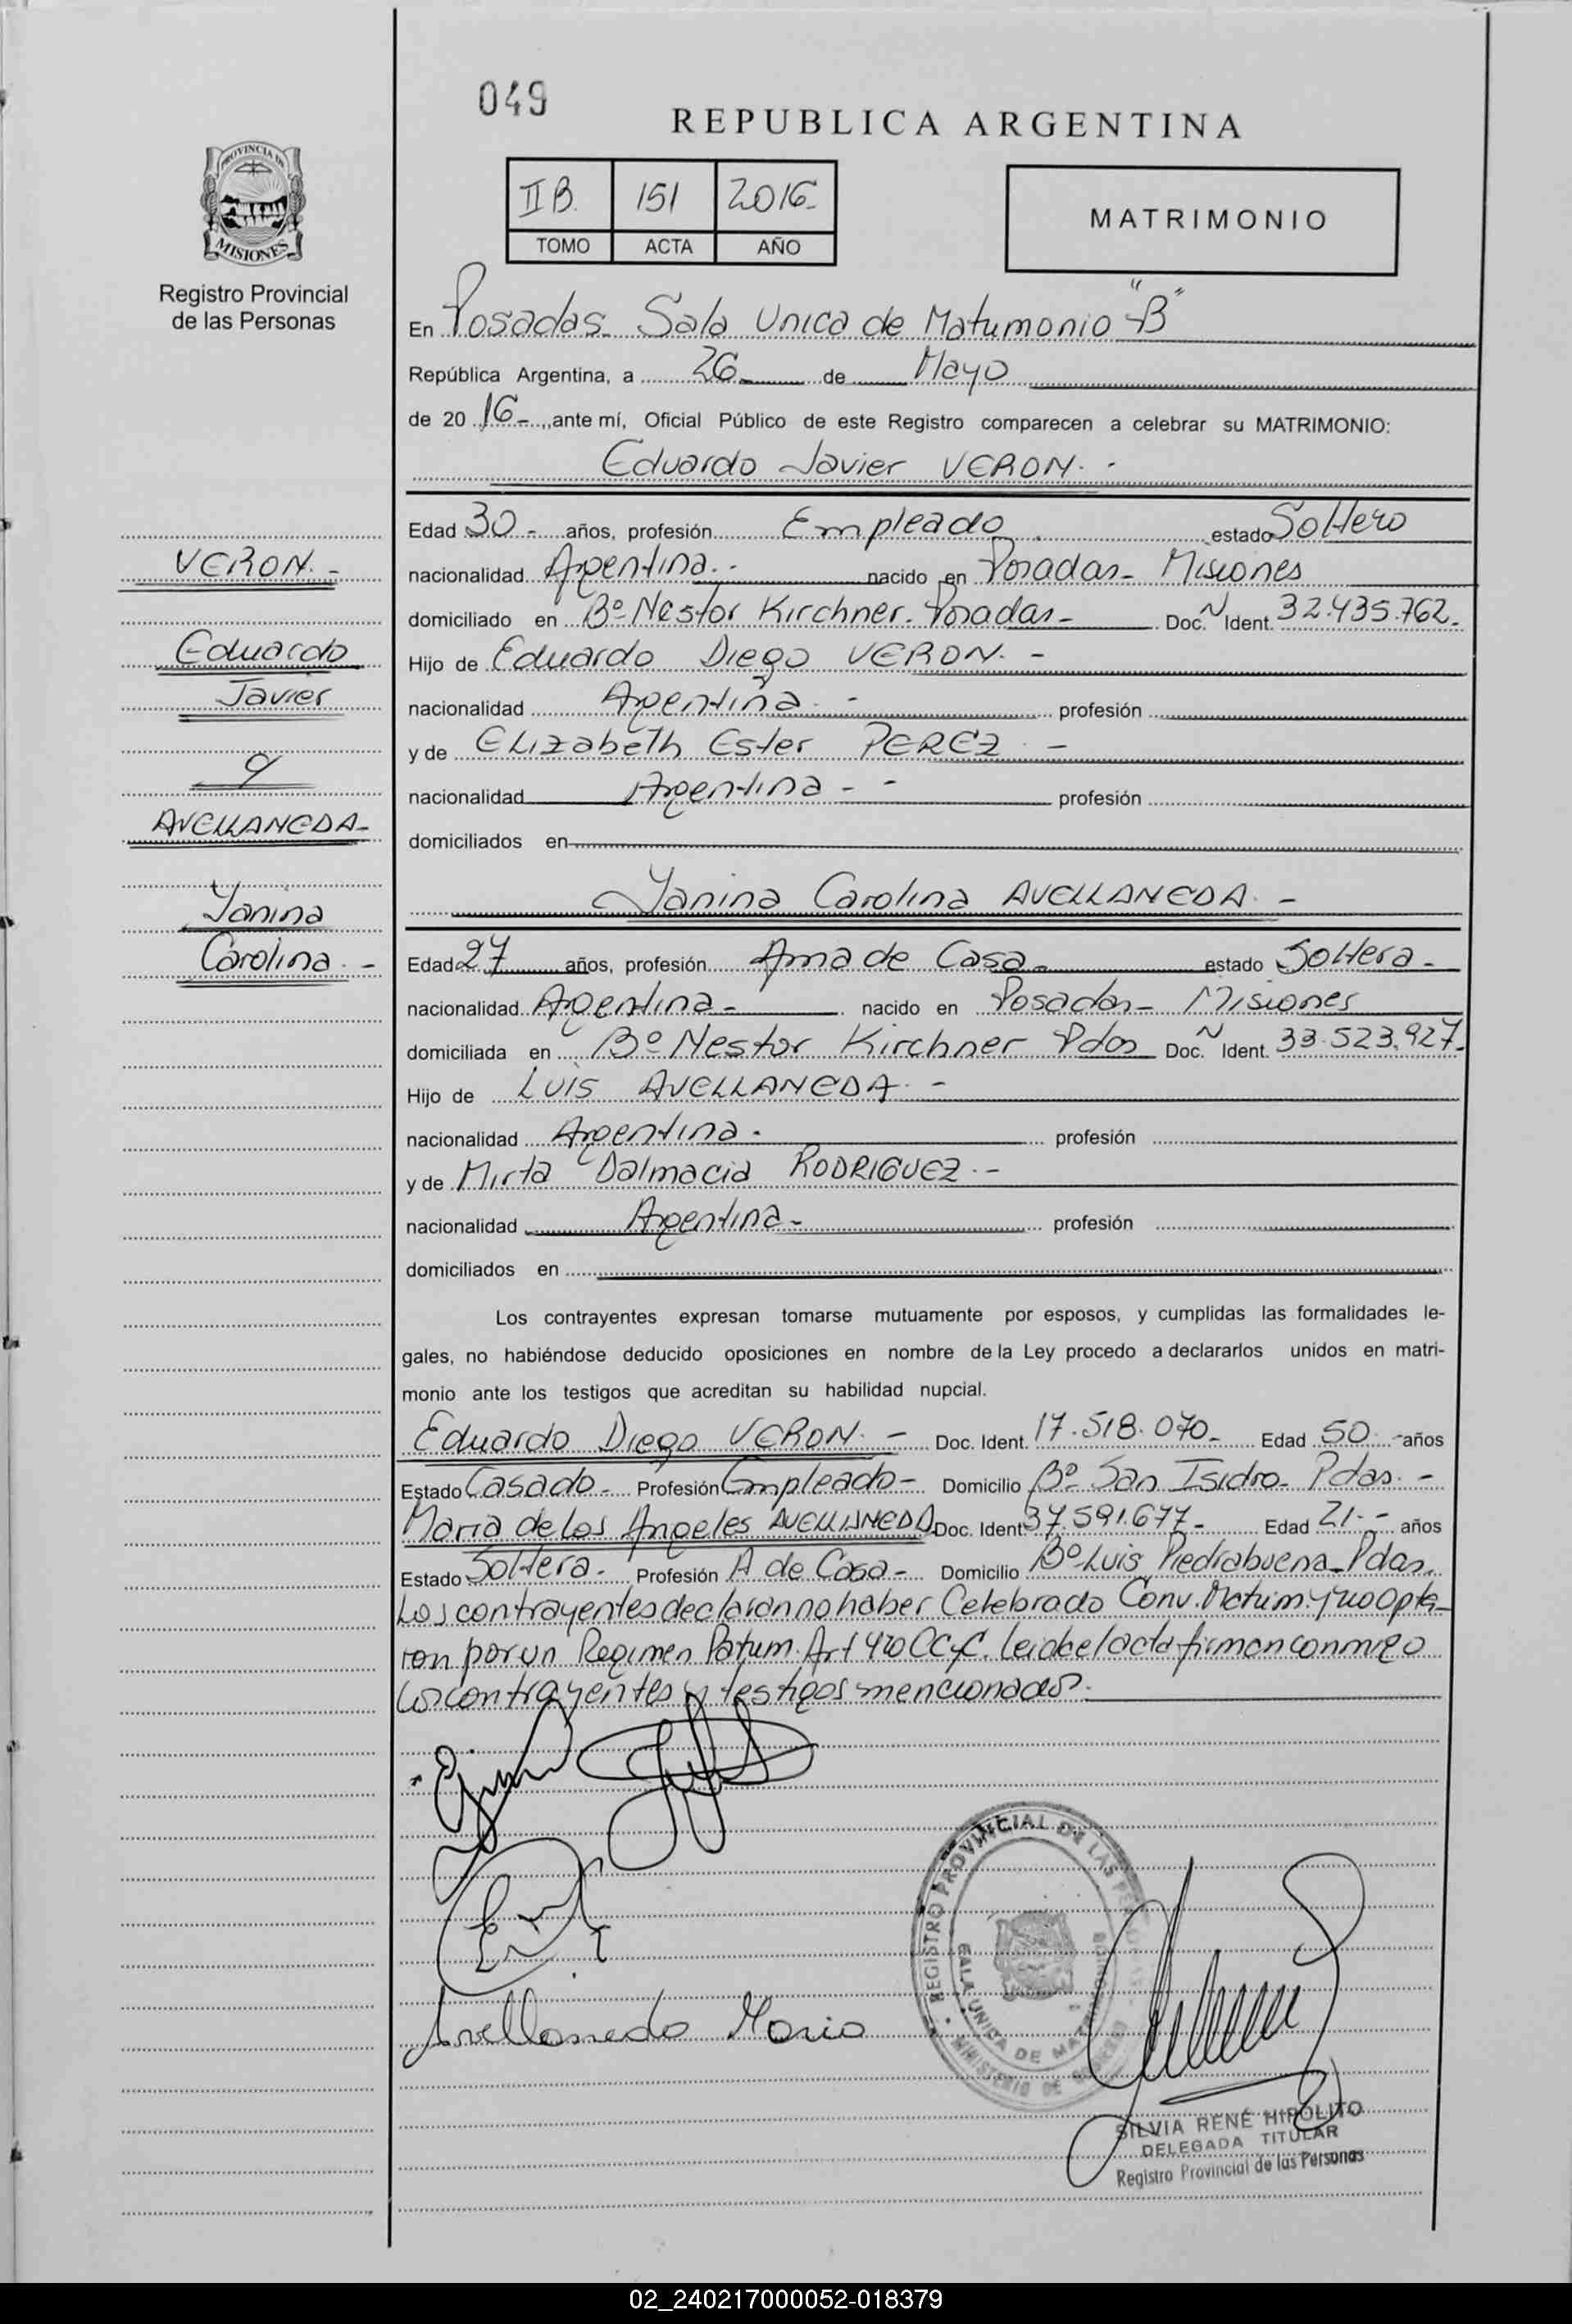 049
REPUBLICA ARGENTINA
PROVINCIA DE
MISIONES
Registro Provincial
de las Personas
II B. 151 2016-
TOMO ACTA AÑO
MATRIMONIO
En Posadas- Sala Unica de Matrimonio "B"
República Argentina, a 26 de Mayo
de 20 16-, ante mí, Oficial Público de este Registro comparecen a celebrar su MATRIMONIO:
Eduardo Javier VERON.-
Edad 30- años, profesión Empleado estado Soltero
nacionalidad Argentina.- nacido en Posadas- Misiones
domiciliado en Bº Nestor Kirchner. Posadas- Doc. N Ident. 32.435.762.-
Hijo de Eduardo Diego VERON.-
nacionalidad Argentina.- profesión
y de Elizabeth Ester PEREZ.-
nacionalidad Argentina-- profesión
domiciliados en
VERON.-
Eduardo
Javier
y
AVELLANEDA-
Yanina
Carolina.-
Yanina Carolina AVELLANEDA.-
Edad 27 años, profesión Ama de Casa- estado Soltera-
nacionalidad Argentina- nacido en Posadas- Misiones
domiciliada en Bº Nestor Kirchner Pdas Doc. N Ident. 33.523.927.-
Hijo de Luis AVELLANEDA.-
nacionalidad Argentina. profesión
y de Mirta Dalmacia RODRIGUEZ.-
nacionalidad Argentina- profesión
domiciliados en
Los contrayentes expresan tomarse mutuamente por esposos, y cumplidas las formalidades le-
gales, no habiéndose deducido oposiciones en nombre de la Ley procedo a declararlos unidos en matri-
monio ante los testigos que acreditan su habilidad nupcial.
Eduardo Diego VERON.- Doc. Ident. 17.518.070- Edad 50.- años
Estado Casado- Profesión Empleado- Domicilio Bº San Isidro- Pdas.-
Maria de los Angeles AVELLANEDA Doc. Ident. 37.591.677- Edad 21.- años
Estado Soltera- Profesión A de Casa- Domicilio Bº Luis Piedrabuena-Pdas.
Los contrayentes declaran no haber Celebrado Conv. Matrim. y no opta-
ron por un Regimen Patrim. Art 420 CCyC. Leida el acta firman conmigo
los contrayentes y testigos mencionados.
Avellaneda Maria
REGISTRO PROVINCIAL DE LAS PERSONAS
SALA UNICA DE MATRIMONIOS
MINISTERIO DE GOBIERNO
SILVIA RENÉ HIPOLITO
DELEGADA TITULAR
Registro Provincial de las Personas
02_240217000052-018379